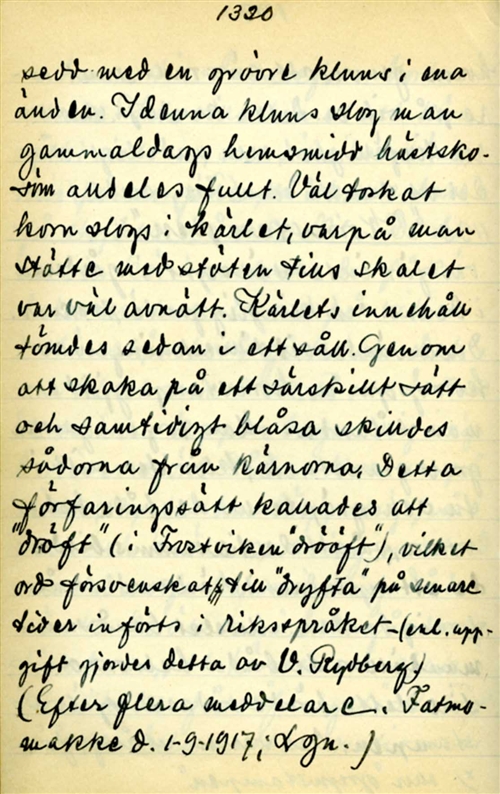 1320
sedd med en grövre klump i ena
änden. I denna klump slog man
gammaldags hemsmidd hästsko-
söm alldeles fullt. Väl torkat
korn slogs i kärlet, varpå man
stötte med stöten tills skalet
var väl avnött. Kärlets innehåll
tömdes sedan i ett såll. Genom
att skaka på ett särskillt sätt
och samtidigt blåsa skindes
sådorna från kärnorna. Detta
förfaringssätt kallades att
"dröft" (i Frostviken "drööft"), vilket
ord försvenskat till "dryfta" på senare
tider införts i rikspråket (enl. upp-
gift gjordes detta av V. Rydberg)
(Efter flera meddelare. Fatmo-
makke d. 1-9-1917; Lgn.)